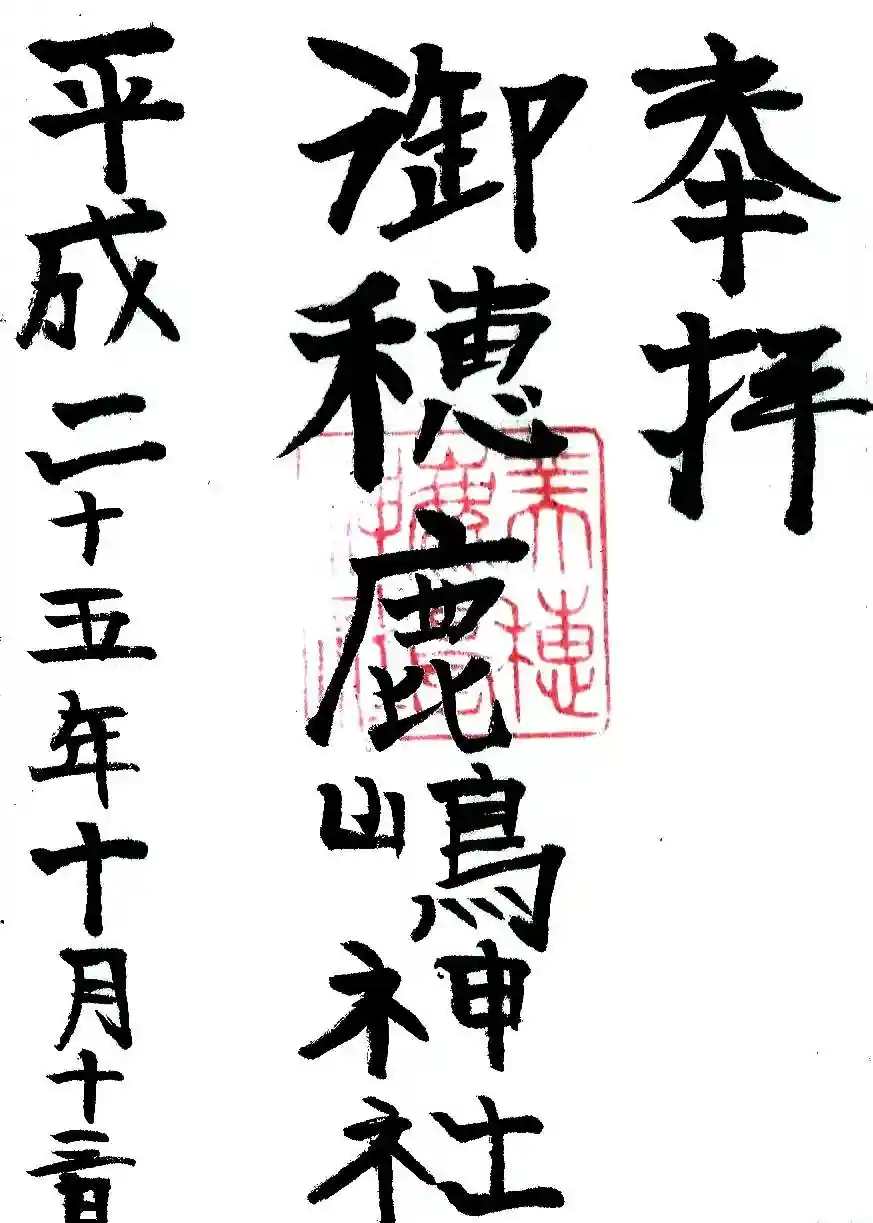 奉拝
御穂鹿嶋神社
平成二十五年十月十三日
美穂